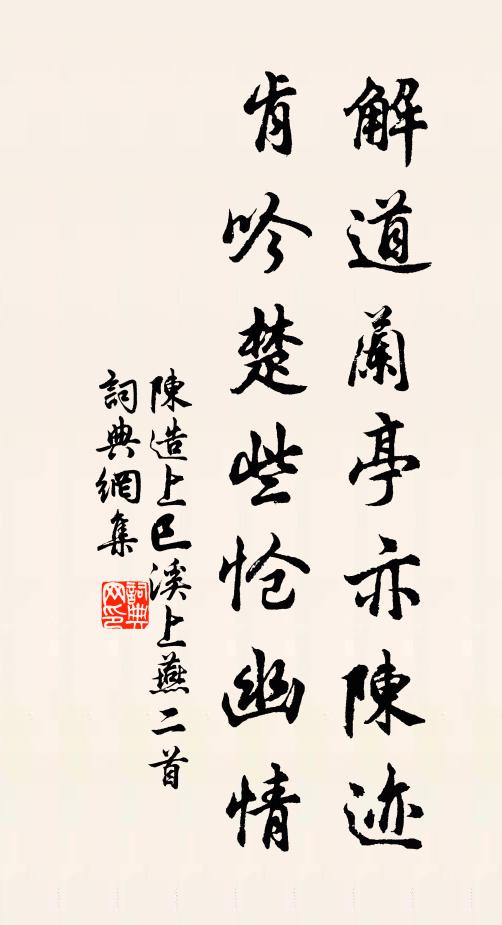 解道蘭亭亦陳迹
肯吟楚些怆幽情
陳造上巳溪上燕二首
詞典網集
詞典网印